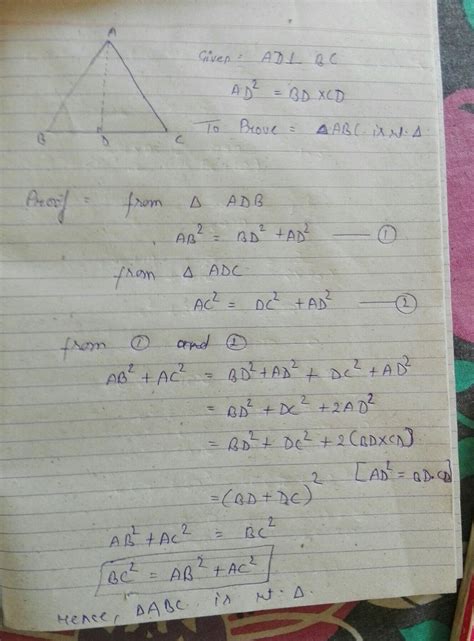 A
B D C
Given = AD⊥ BC
AD² = BD × CD
To Prove = △ABC is rt. △.
Proof = from △ ADB
AB² = BD² + AD² — ①
from △ ADC
AC² = DC² + AD² — ②
from ① and ②
AB² + AC² = BD² + AD² + DC² + AD²
= BD² + DC² + 2AD²
= BD² + DC² + 2(BD×CD)
[AD² = BD·CD]
= (BD + DC)²
AB² + AC² = BC²
BC² = AB² + AC²
Hence, △ABC is rt. △.